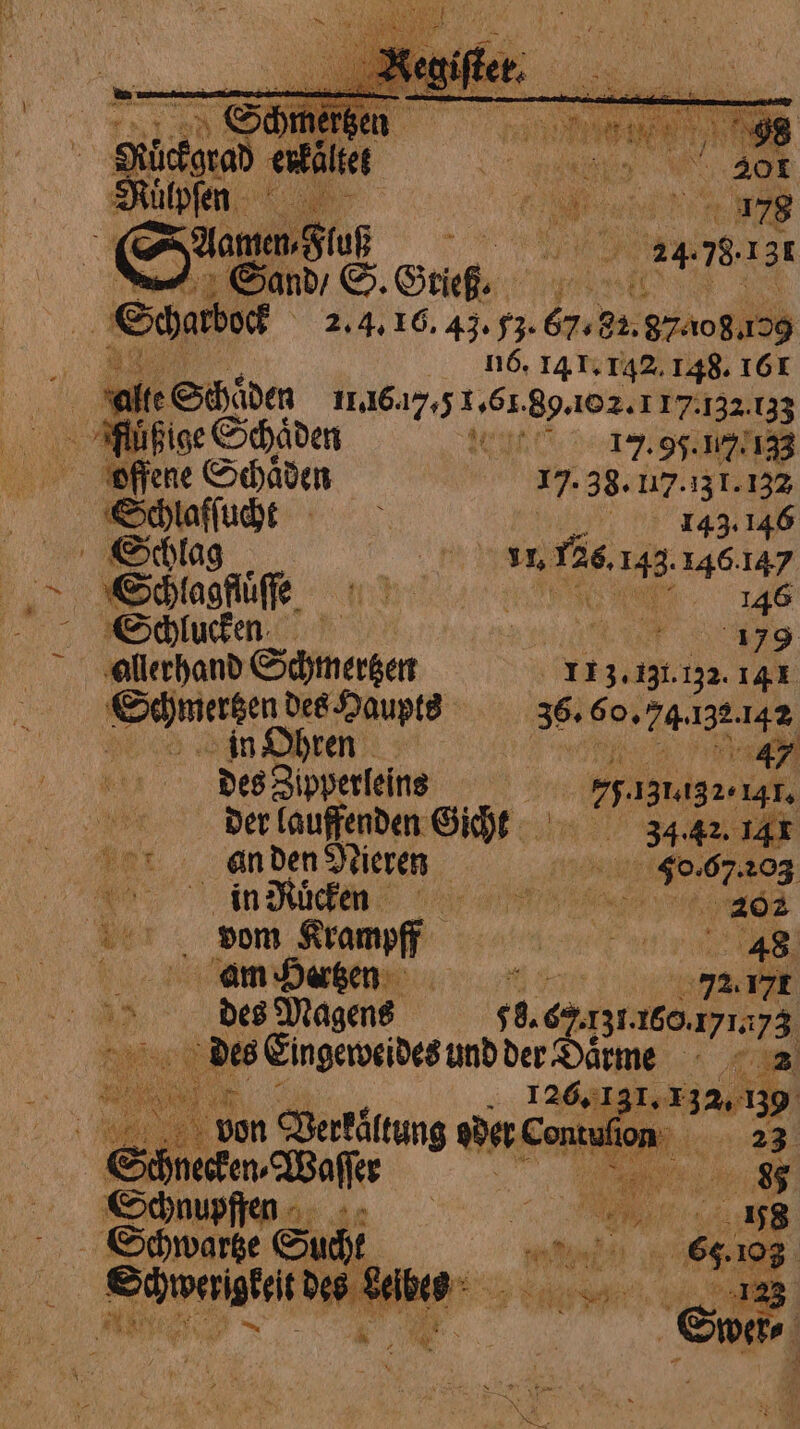 Regiſter.
Schmertzen 98
Růckgrad erkåltet 201
Růlpſen 178
SAamen-Fluß 24.78.131
Sand/ S. Grieß.
Scharbock 2.4.16.43.53.67.82.87.108.109
116.141.142.148.161
alte Schåden 11.16.17.51.61.89.102.117.132.133
flůßige Schåden 17.95.117.133
offene Schåden 17.38.117.131.132
Schlafſucht 143.146
Schlag 11.126.143.146.147
Schlagflůſſe 146
Schlucken 179
allerhand Schmertzen 113.131.132.141
Schmertzen des Haupts 36.60.74.132.142
in Ohren 47
des Zipperleins 75.131.132.141.
der lauffenden Gicht 34.42.141
an den Nieren 50.67.203
in Růcken 202
vom Krampff 48
am Hertzen 72.171
des Magens 58.67.131.160.171.173
des Eingeweides und der Dårme 2
126.131.132.139
von Verkåltung oder Contuſion 23
Schnecken-Waſſer 85
Schnupffen 158
Schwartze Sucht 65.103
Schwerigkeit des Leibes 123
Swer-